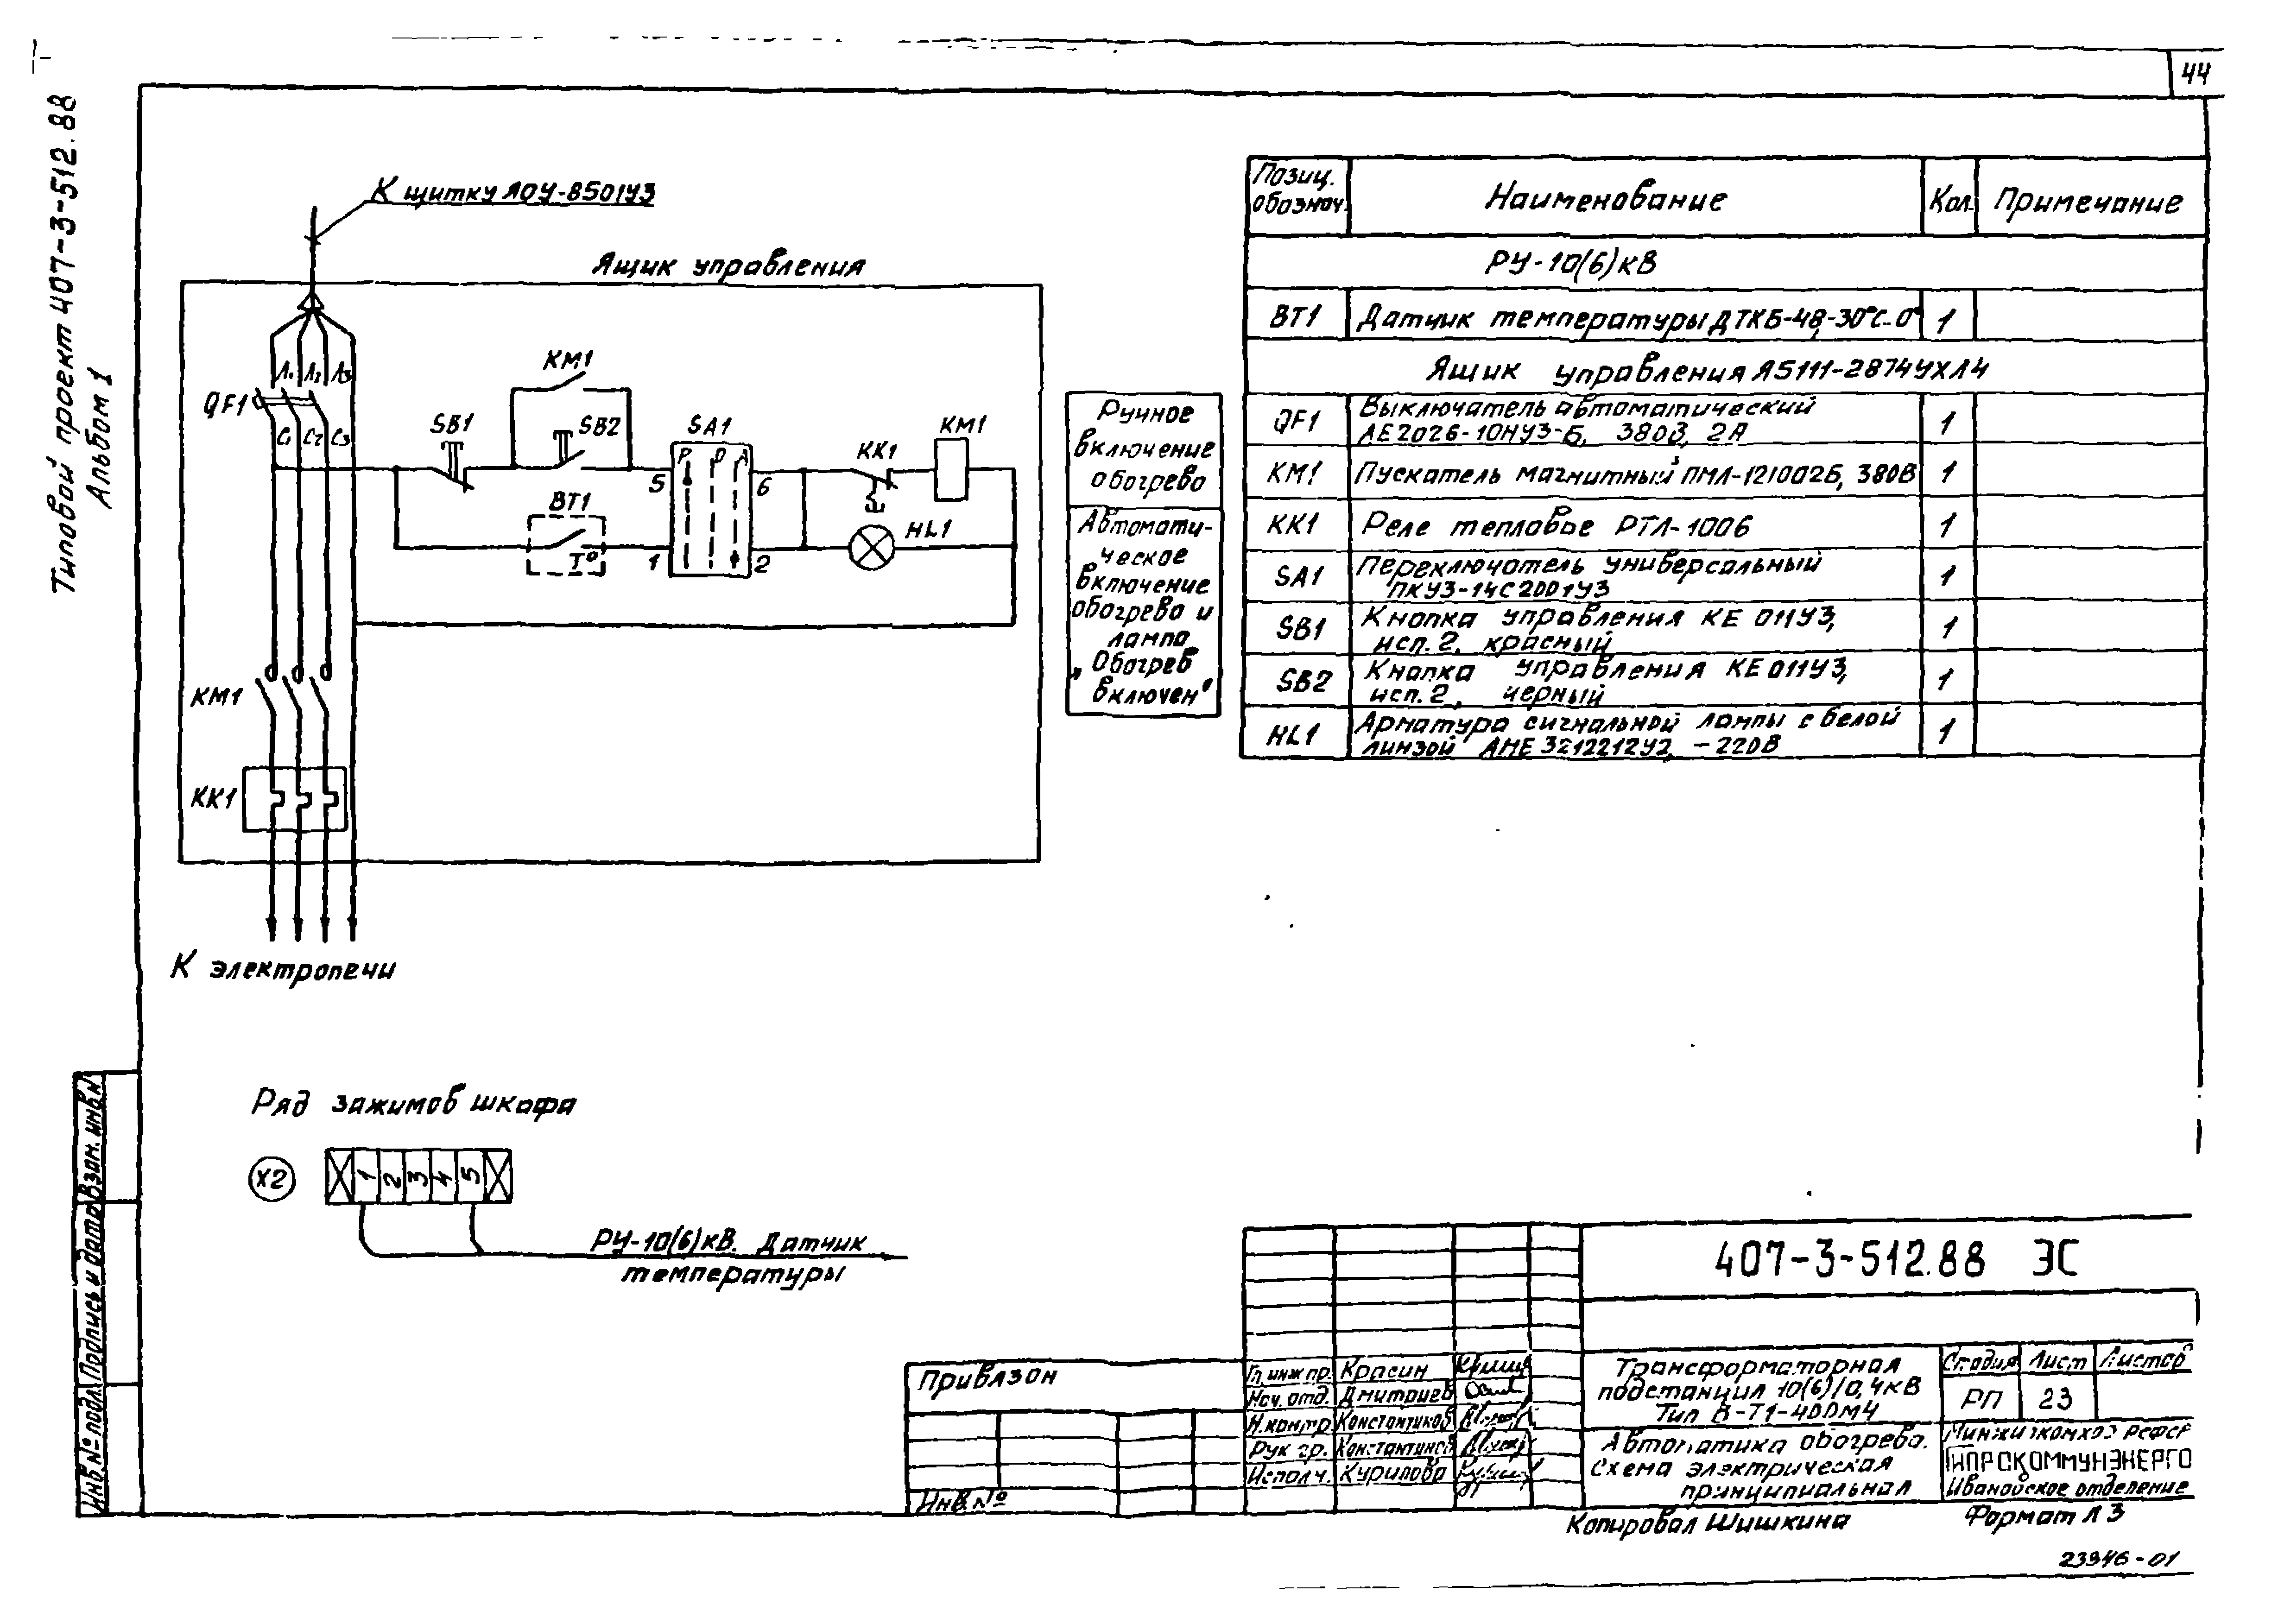 44
Типовой проект 407-3-512.88
Альбом 1
К щитку ЯОУ-8501У3
Ящик управления
Л1 Л2 Л3
QF1
С1 С2 С3
KM1
SB1
SB2
SA1
Р О А
5
6
KK1
KM1
BT1
T°
1
2
HL1
KM1
KK1
К электропечи
Ручное
включение
обогрева
Автомати-
ческое
включение
обогрева и
лампа
„Обогрев
включен"
Позиц. обознач.
Наименование
Кол.
Примечание
РУ-10(6)кВ
BT1 Датчик температуры ДТКБ-48,-30°С-0° 1
Ящик управления Я5111-2874УХЛ4
QF1 Выключатель автоматический
АЕ2026-10НУ3-Б, 380В, 2А 1
KM1 Пускатель магнитный ПМЛ-121002Б, 380В 1
KK1 Реле тепловое РТЛ-1006 1
SA1 Переключатель универсальный
ПКУ3-14С2001У3 1
SB1 Кнопка управления КЕ 011У3,
исп.2, красный 1
SB2 Кнопка управления КЕ011У3,
исп.2, черный 1
HL1 Арматура сигнальной лампы с белой
линзой АМЕ 321221У2, ~220В 1
Ряд зажимов шкафа
X2
1 2 3 4 5
РУ-10(6)кВ. Датчик
температуры
Взам. инв.№
Подпись и дата
Инв.№ подл.
Привязан
Инв.№
407-3-512.88 ЭС
Гл.инж.пр. Красин
Нач.отд. Дмитриев
Н.контр. Константинов
Рук.гр. Константинов
Исполн. Курилова
Трансформаторная
подстанция 10(6)/0,4кВ
Тип К-Т1-400М4
Стадия Лист Листов
РП 23
Автоматика обогрева.
Схема электрическая
принципиальная
Минжилкомхоз РСФСР
ГИПРОКОММУНЭНЕРГО
Ивановское отделение
Копировал Шишкина
Формат А3
23946-01